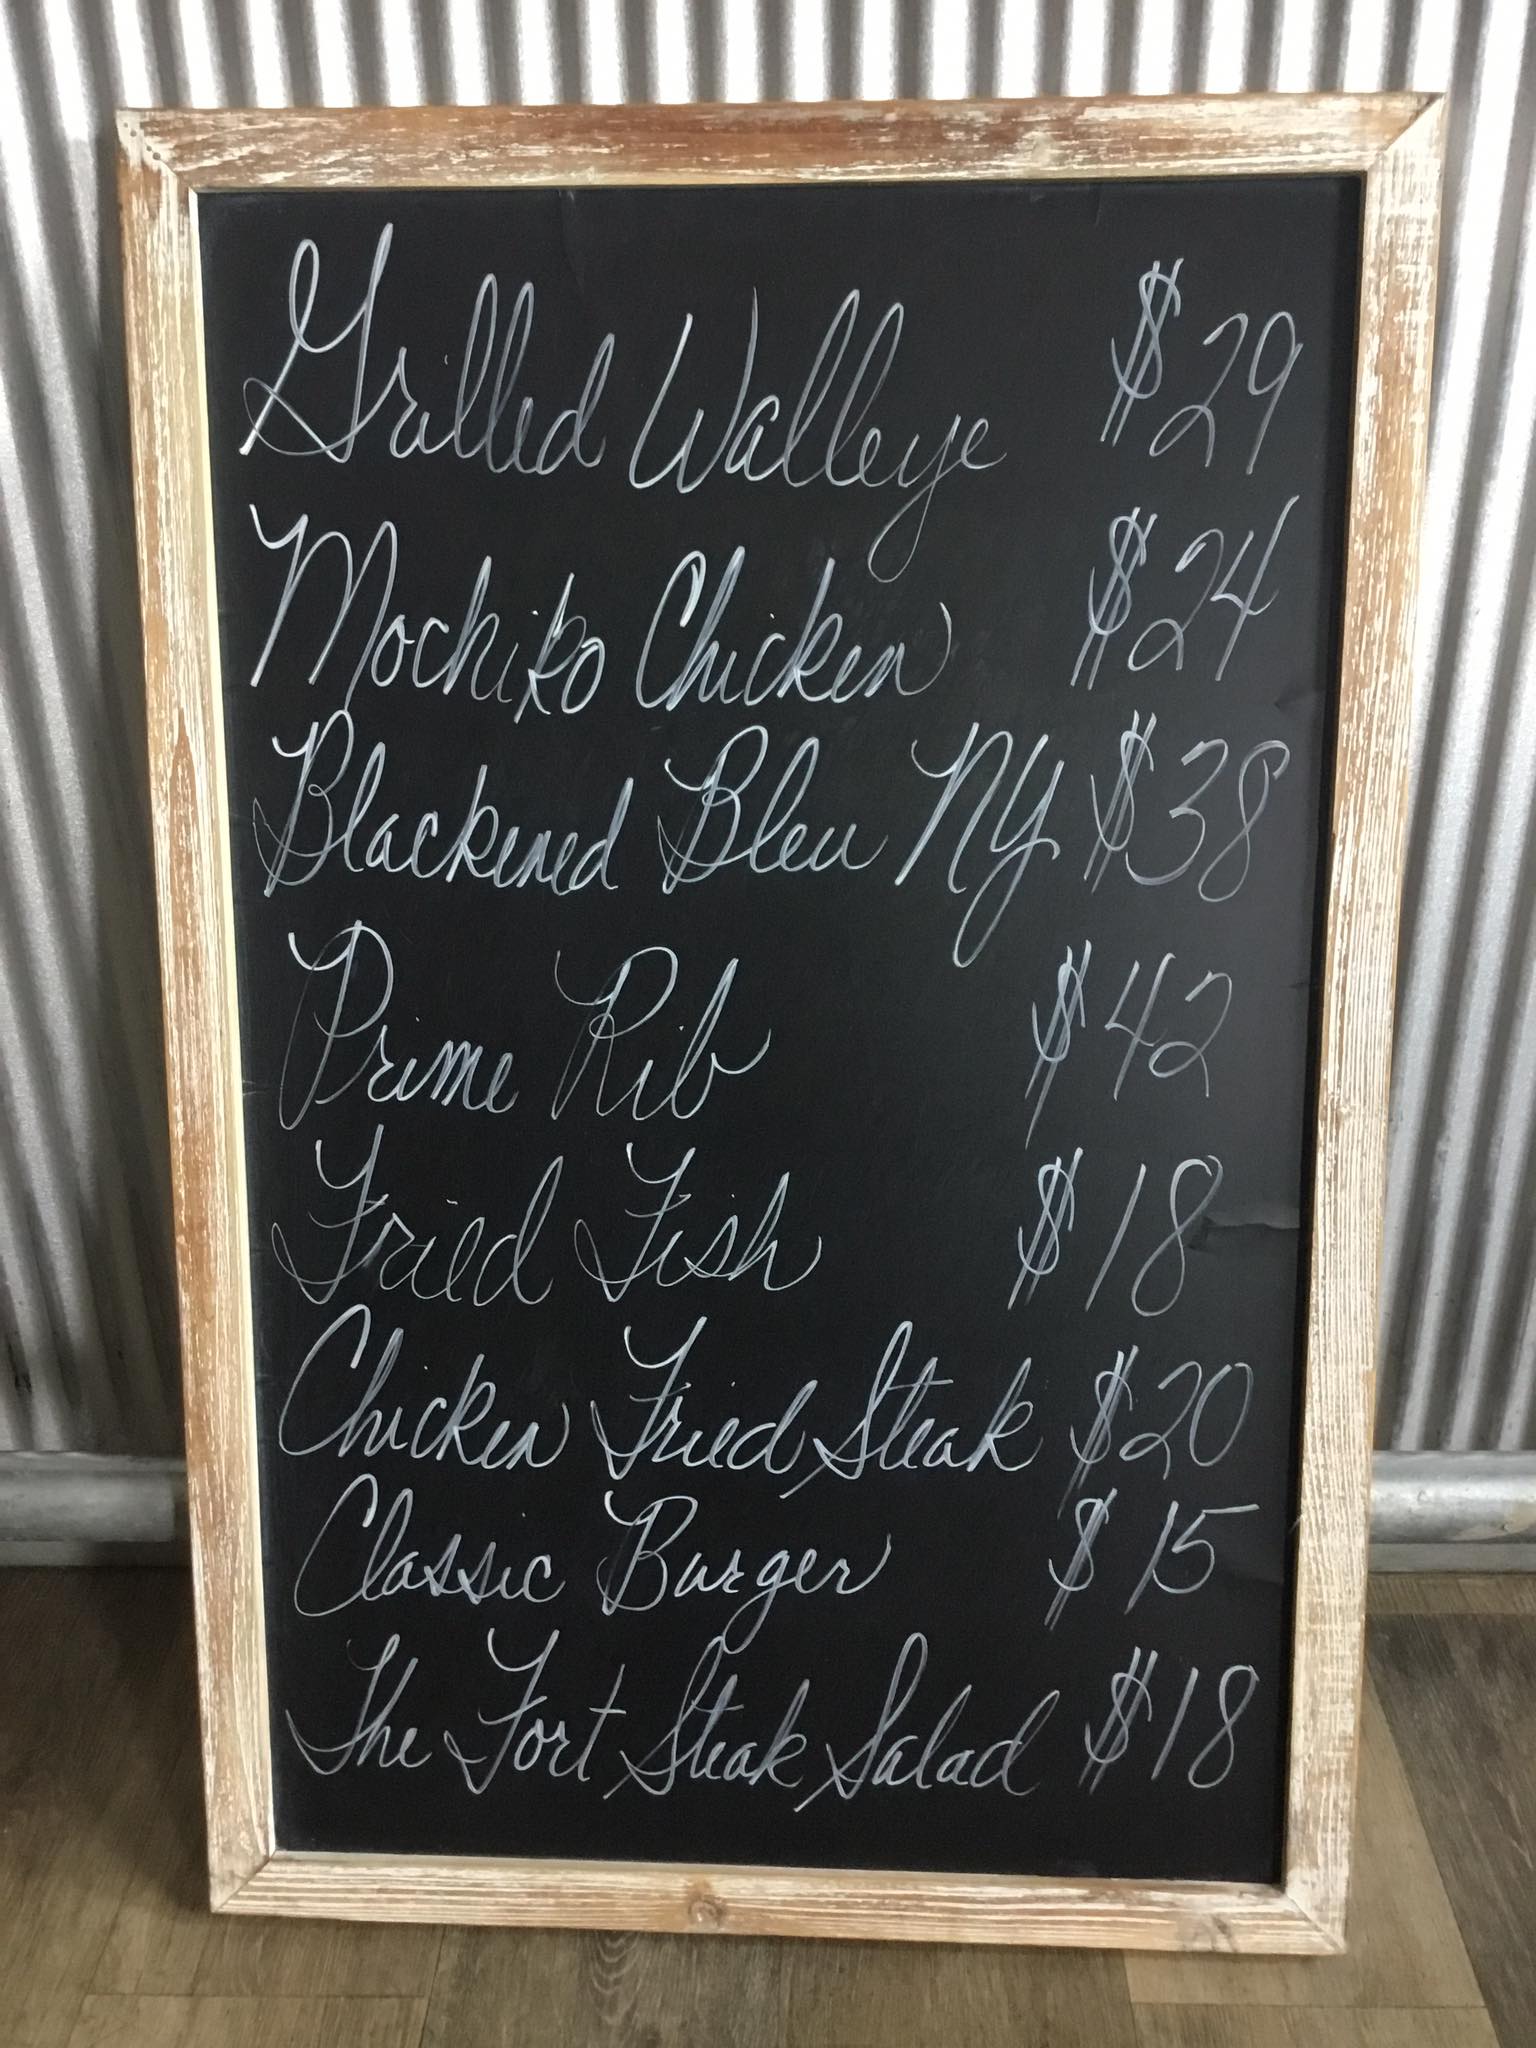 Grilled Walleye $29
Mochiko Chicken $24
Blackened Bleu NY $38
Prime Rib $42
Fried Fish $18
Chicken Fried Steak $20
Classic Burger $15
The Fort Steak Salad $18